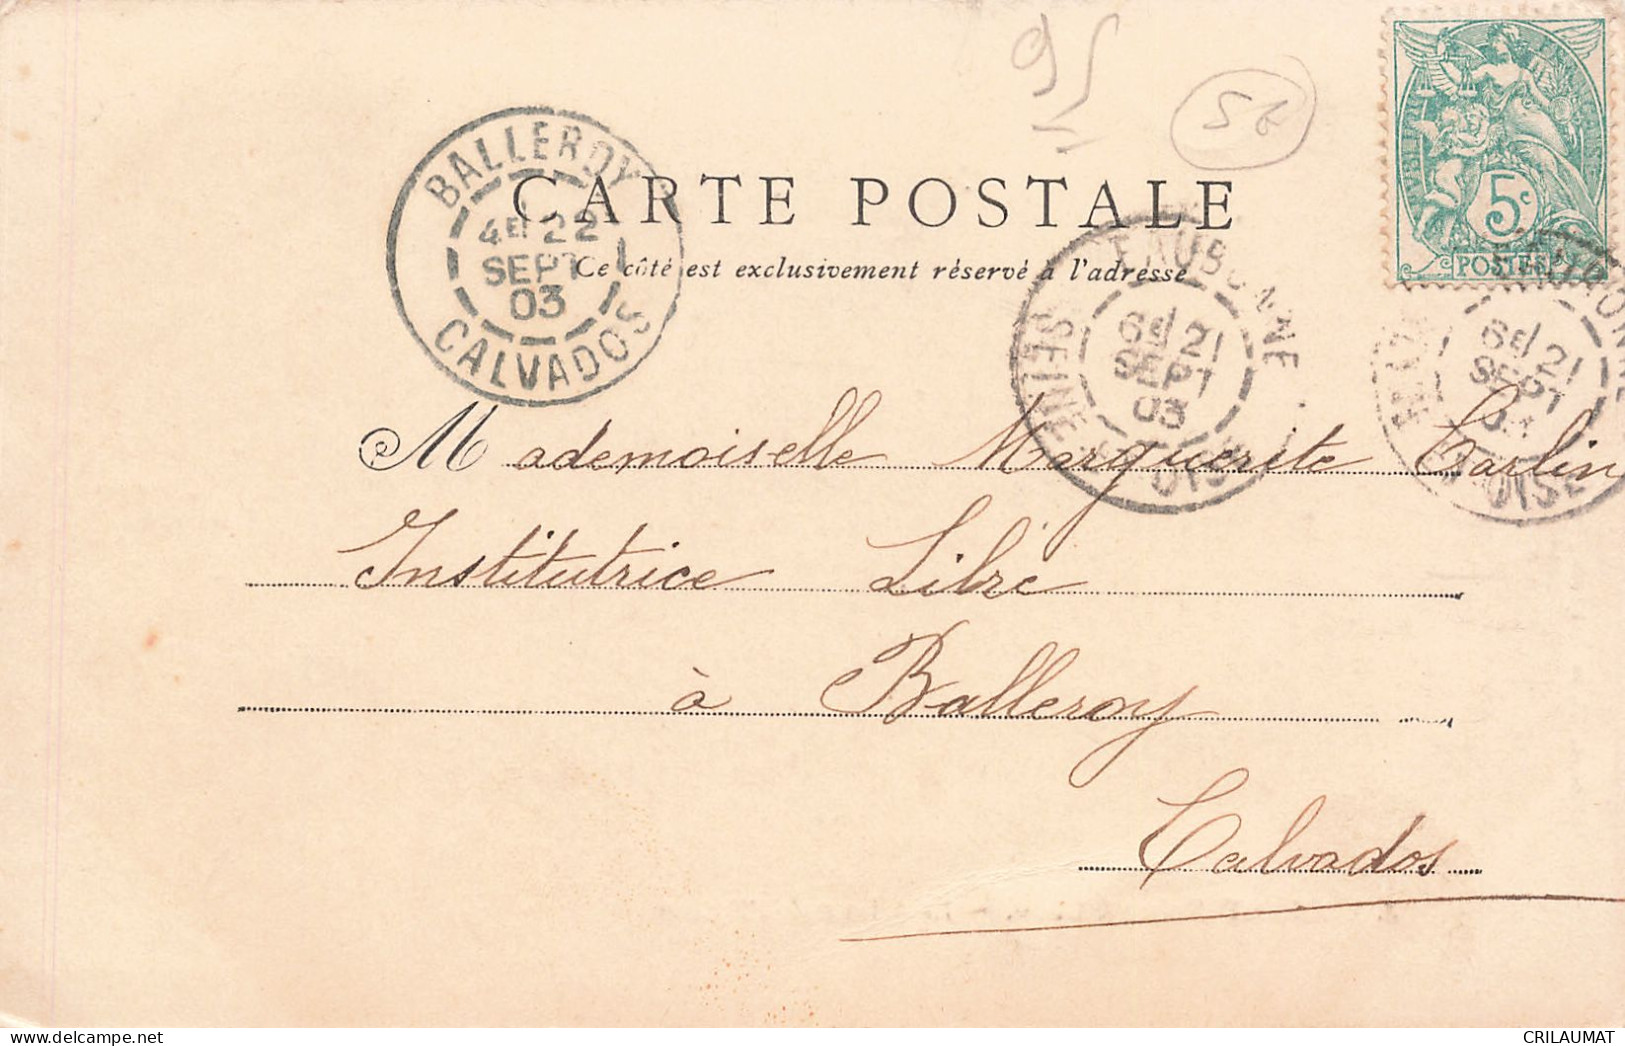 95
56
BALLEROY
4E 22
SEPT
03
CALVADOS
CARTE POSTALE
Ce côté est exclusivement réservé à l'adresse
5c
POSTES
EAUBONNE
6E 21
SEPT
03
SEINE ET OISE
6E 21
SEPT
OISE
Mademoiselle Marguerite Carlin
Institutrice Libre
à Balleroy
Calvados
www.delcampe.net
CRILAUMAT